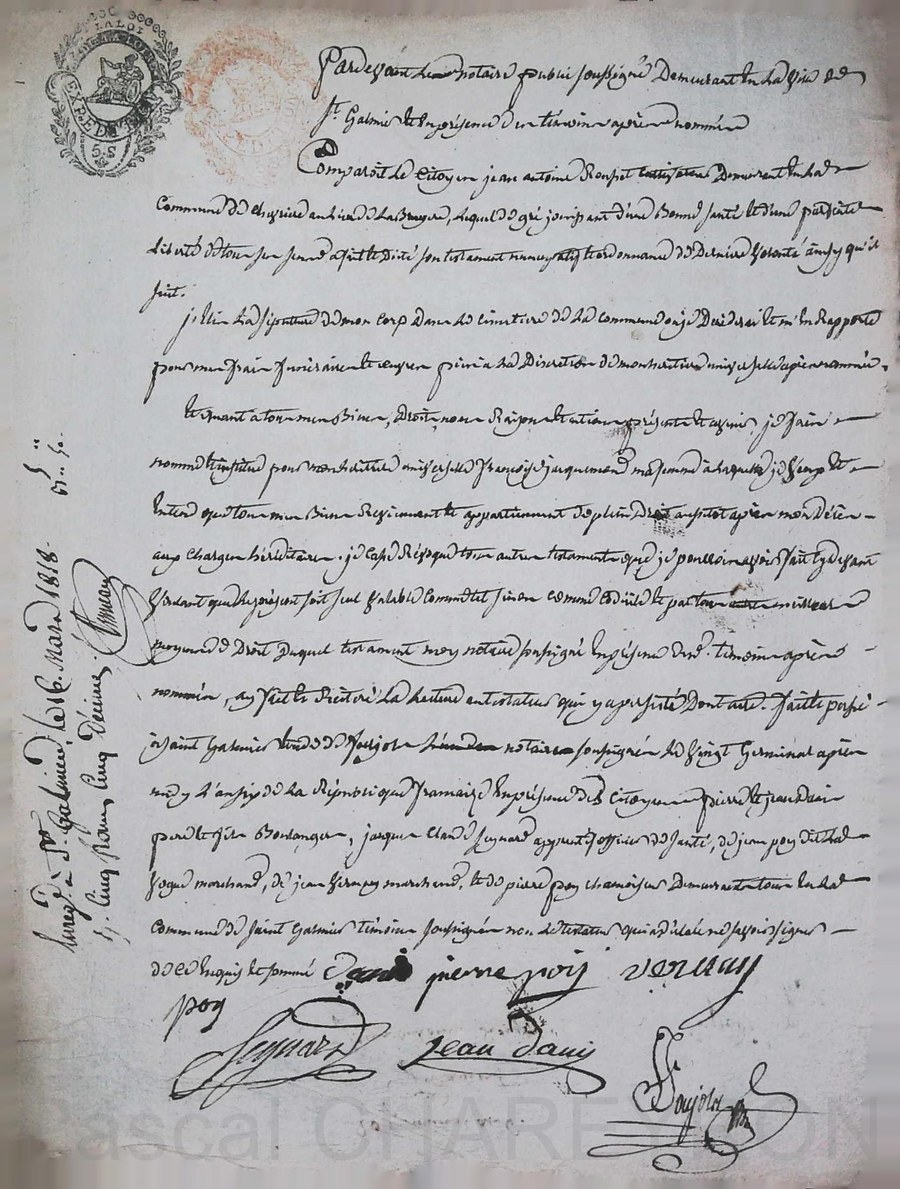 LA LOI
EXP.ED
S.S
Pardevant le notaire public soussigné Demeurant en la ville de
St. Galmier et en présence des témoins après nommés
Comparoit le Citoyen jean antoine Demeurant en la
Commune de au lieu de La Bruyere, lequel de gré jouissant d'une Bonne santé et d'une parfaite
Liberté de tous ses sens a fait et Dicté son testament nuncupatif et ordonnance de Derniere volonté ainsy qu'il
suit.
j'élis La sépulture de mon Corps Dans Le Cimetiere de La Commune ou je Déciderai et m'en Rapporte
pour mes frais funeraires et œuvres pies a La Discretion de mon héritiere universelle après nommée.
Et quant a tous mes Biens, Droits, noms Raisons et actions présents et avenir, je fais
nomme et institue pour mon héritiere universelle françoise jacquemond ma femme a laquelle je veux et
Entend que tous mes Biens et appartiennent de plein Droit aussitot apres mon Décès
aux Charges héréditaires. je Casse Révoque tous autres testaments que je pourrois avoir fait cy devant
voulant que le présent soit seul valable Comme tel sinon comme Codicille et par tous meilleurs
moyens de Droit Duquel testament moy notaire soussigné En présence des d. témoins après
nommés, ay fait et Réitéré La Lecture au testateur qui y a persisté Dont acte. fait et passé
a saint Galmier Etude de notaire soussigné Le vingt Germinal après
midy L'an six de La République française En présence des Citoyens pierre et jean
pere et fils Boulangers, jacques Claude Seignard officier de santé, de jean poy dit La
marchand, de jean marchand, et de pierre poy chamoiseur Demeurants tous en La
Commune de Saint Galmier témoins soussignés non le testateur qui a déclaré ne savoir signer
de ce Enquis et sommé pierre poy vernay
poy
Seignard jean
Enreg. à St. Galmier, le 16. Mars 1818.
Cinq francs Cinq Décimes.
Pascal CHARETON